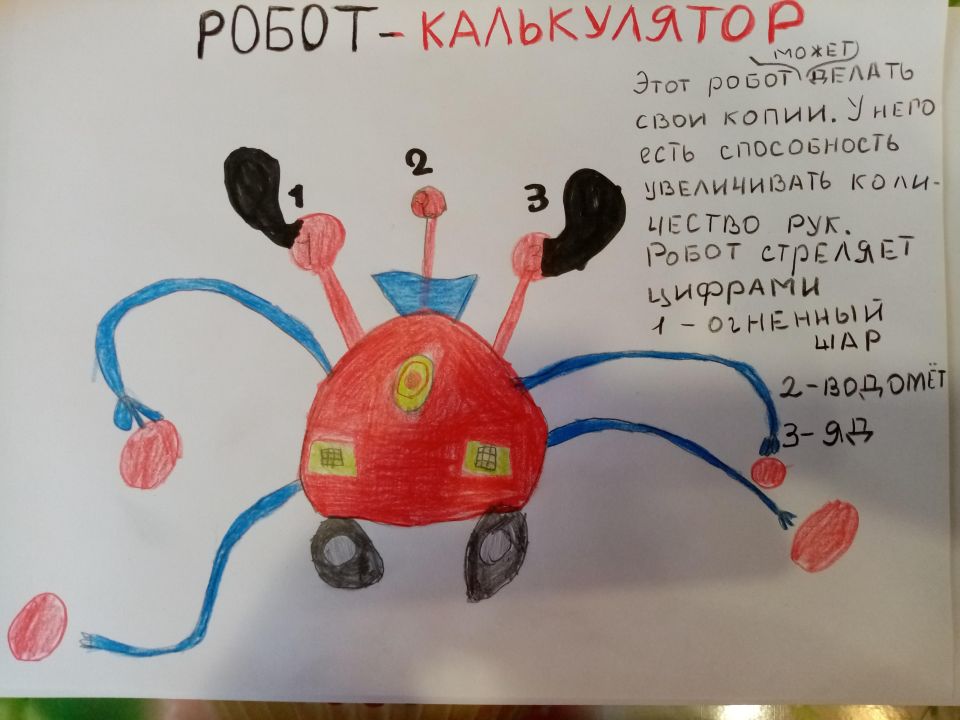 РОБОТ-КАЛЬКУЛЯТОР
может
Этот робот делать
свои копии. У него
есть способность
увеличивать коли-
чество рук.
Робот стреляет
цифрами
1 - огненный
шар
2-водомёт
3-яд
1
2
3